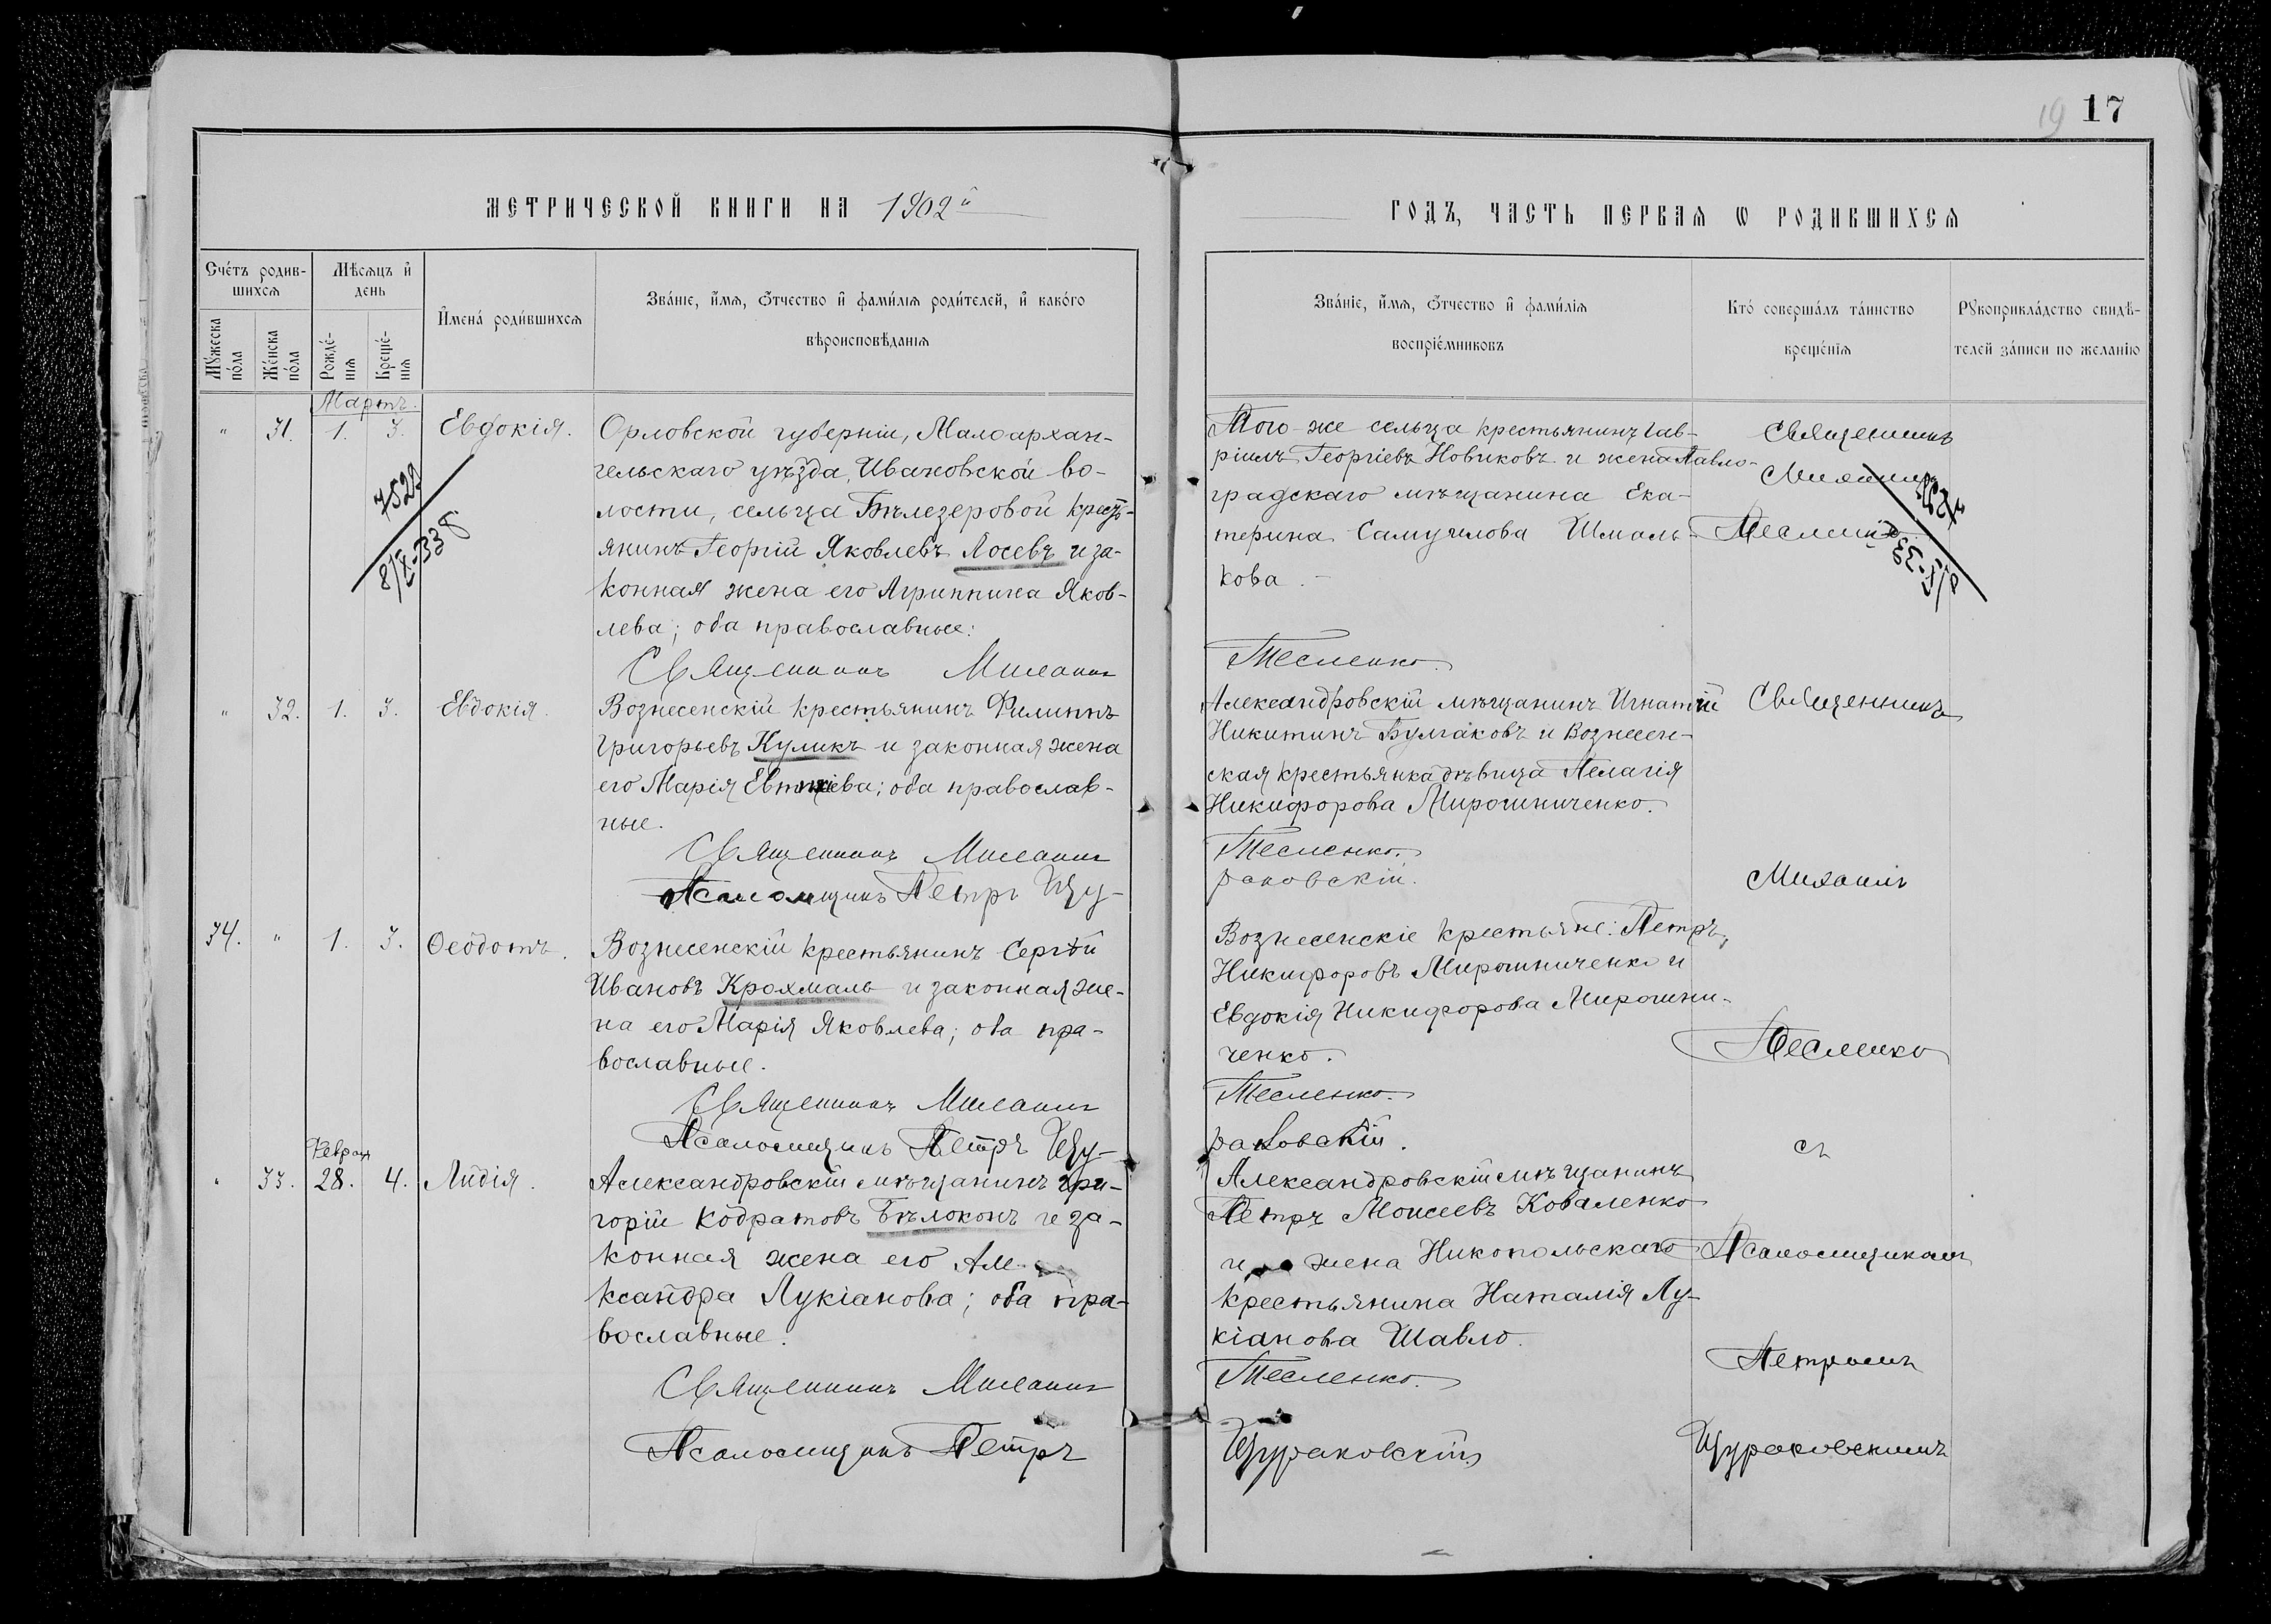 19 17
МЕТРИЧЕСКОЙ КНИГИ НА 1902й
ГОДЪ, ЧАСТЬ ПЕРВАЯ Ѡ РОДИВШИХСЯ
Сче́тъ родив-
шихсѧ
Мѣсѧцъ и҆
день
Мꙋ́жеска
по́ла
Же́нска
по́ла
Рожде́-
нїѧ
Креще́-
нїѧ
И҆мена́ роди́вшихсѧ
Зва́нїе, и҆́мѧ, ѻ҆́тчество и҆ фами́лїѧ роди́телей, и҆ како́го
вѣроисповѣ́данїѧ
Зва́нїе, и҆́мѧ, ѻ҆́тчество и҆ фами́лїѧ
воспрїе́мниковъ
Кто́ соверша́лъ та́инство
креще́нїѧ
Рꙋкоприкла́дство свидѣ́-
телей за́писи по жела́нїю
Мартъ.
" 31. 1. 3. Евдокія.
7529
8/X-338
Орловской губерніи, Малоархан-
гельскаго уѣзда, Ивановской во-
лости, сельца Бѣлезеровой кресть-
янинъ Георгій Яковлевъ Лосевъ и за-
конная жена его Агриппина Яков-
лева; оба православные:
Священникъ Михаилъ
Того же сельца крестьянинъ Гав-
ріилъ Георгіевъ Новиковъ и жена Павло-
градскаго мѣщанина Ека-
терина Самуилова Шмаль-
кова.
Тесленко.
Священникъ
Михаилъ
" 32. 1. 3. Евдокія.
Вознесенскій крестьянинъ Филиппъ
Григорьевъ Куликъ и законная жена
его Марія; оба православ-
ные.
Священникъ Михаилъ
Псаломщикъ Петръ Щу-
Александровскій мѣщанинъ Игнатій
Никитинъ Булгаковъ и Вознесен-
ская крестьянка дѣвица Пелагія
Никифорова Мирошниченко.
Тесленко.
раковскій.
Священникъ
Михаилъ
34. " 1. 3. Ѳеодотъ.
Вознесенскій крестьянинъ Сергѣй
Ивановъ Крохмаль и законная же-
на его Марія Яковлева; оба пра-
вославные.
Священникъ Михаилъ
Псаломщикъ Петръ Щу-
Вознесенскіе крестьяне: Петръ
Никифоровъ Мирошниченко и
Евдокія Никифорова Мирошни-
ченко.
Тесленко.
раковскій.
Тесленко
съ
Феврал
" 33. 28. 4. Лидія.
Александровскій мѣщанинъ Гри-
горій Кодратовъ Бѣлоконъ и за-
конная жена его Але
ксандра Лукіанова; оба пра-
вославные.
Священникъ Михаилъ
Псаломщикъ Петръ
Александровскій мѣщанинъ
Петръ Моисеевъ Коваленко
и жена Никопольскаго
крестьянина Наталія Лу-
кіанова Шавло.
Тесленко.
Щураковскій
Псаломщикомъ
Петромъ
Щураковскимъ